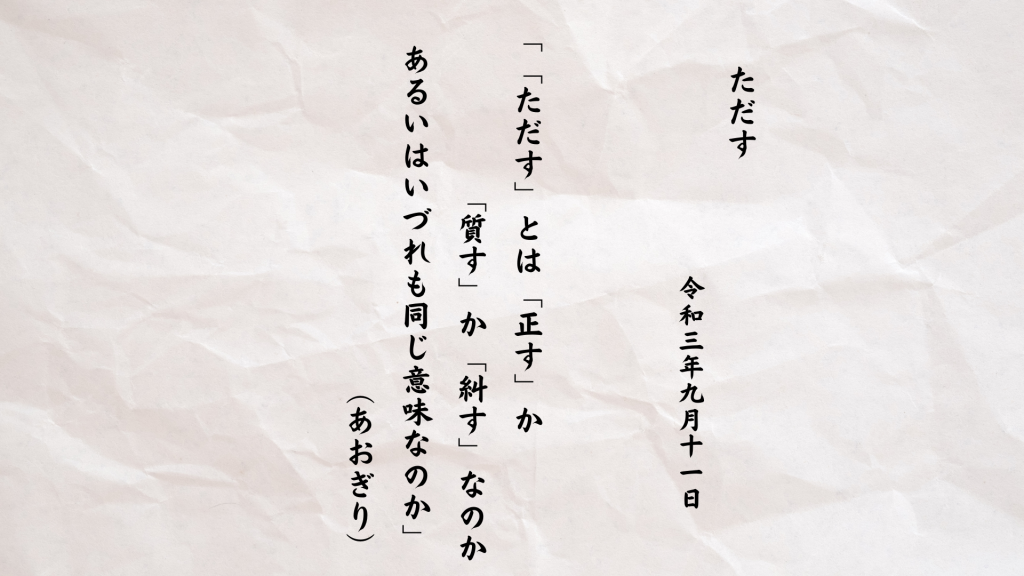 ただす
令和三年九月十一日
「「ただす」とは「正す」か
「質す」か「糾す」なのか
あるいはいづれも同じ意味なのか」
（あおぎり）